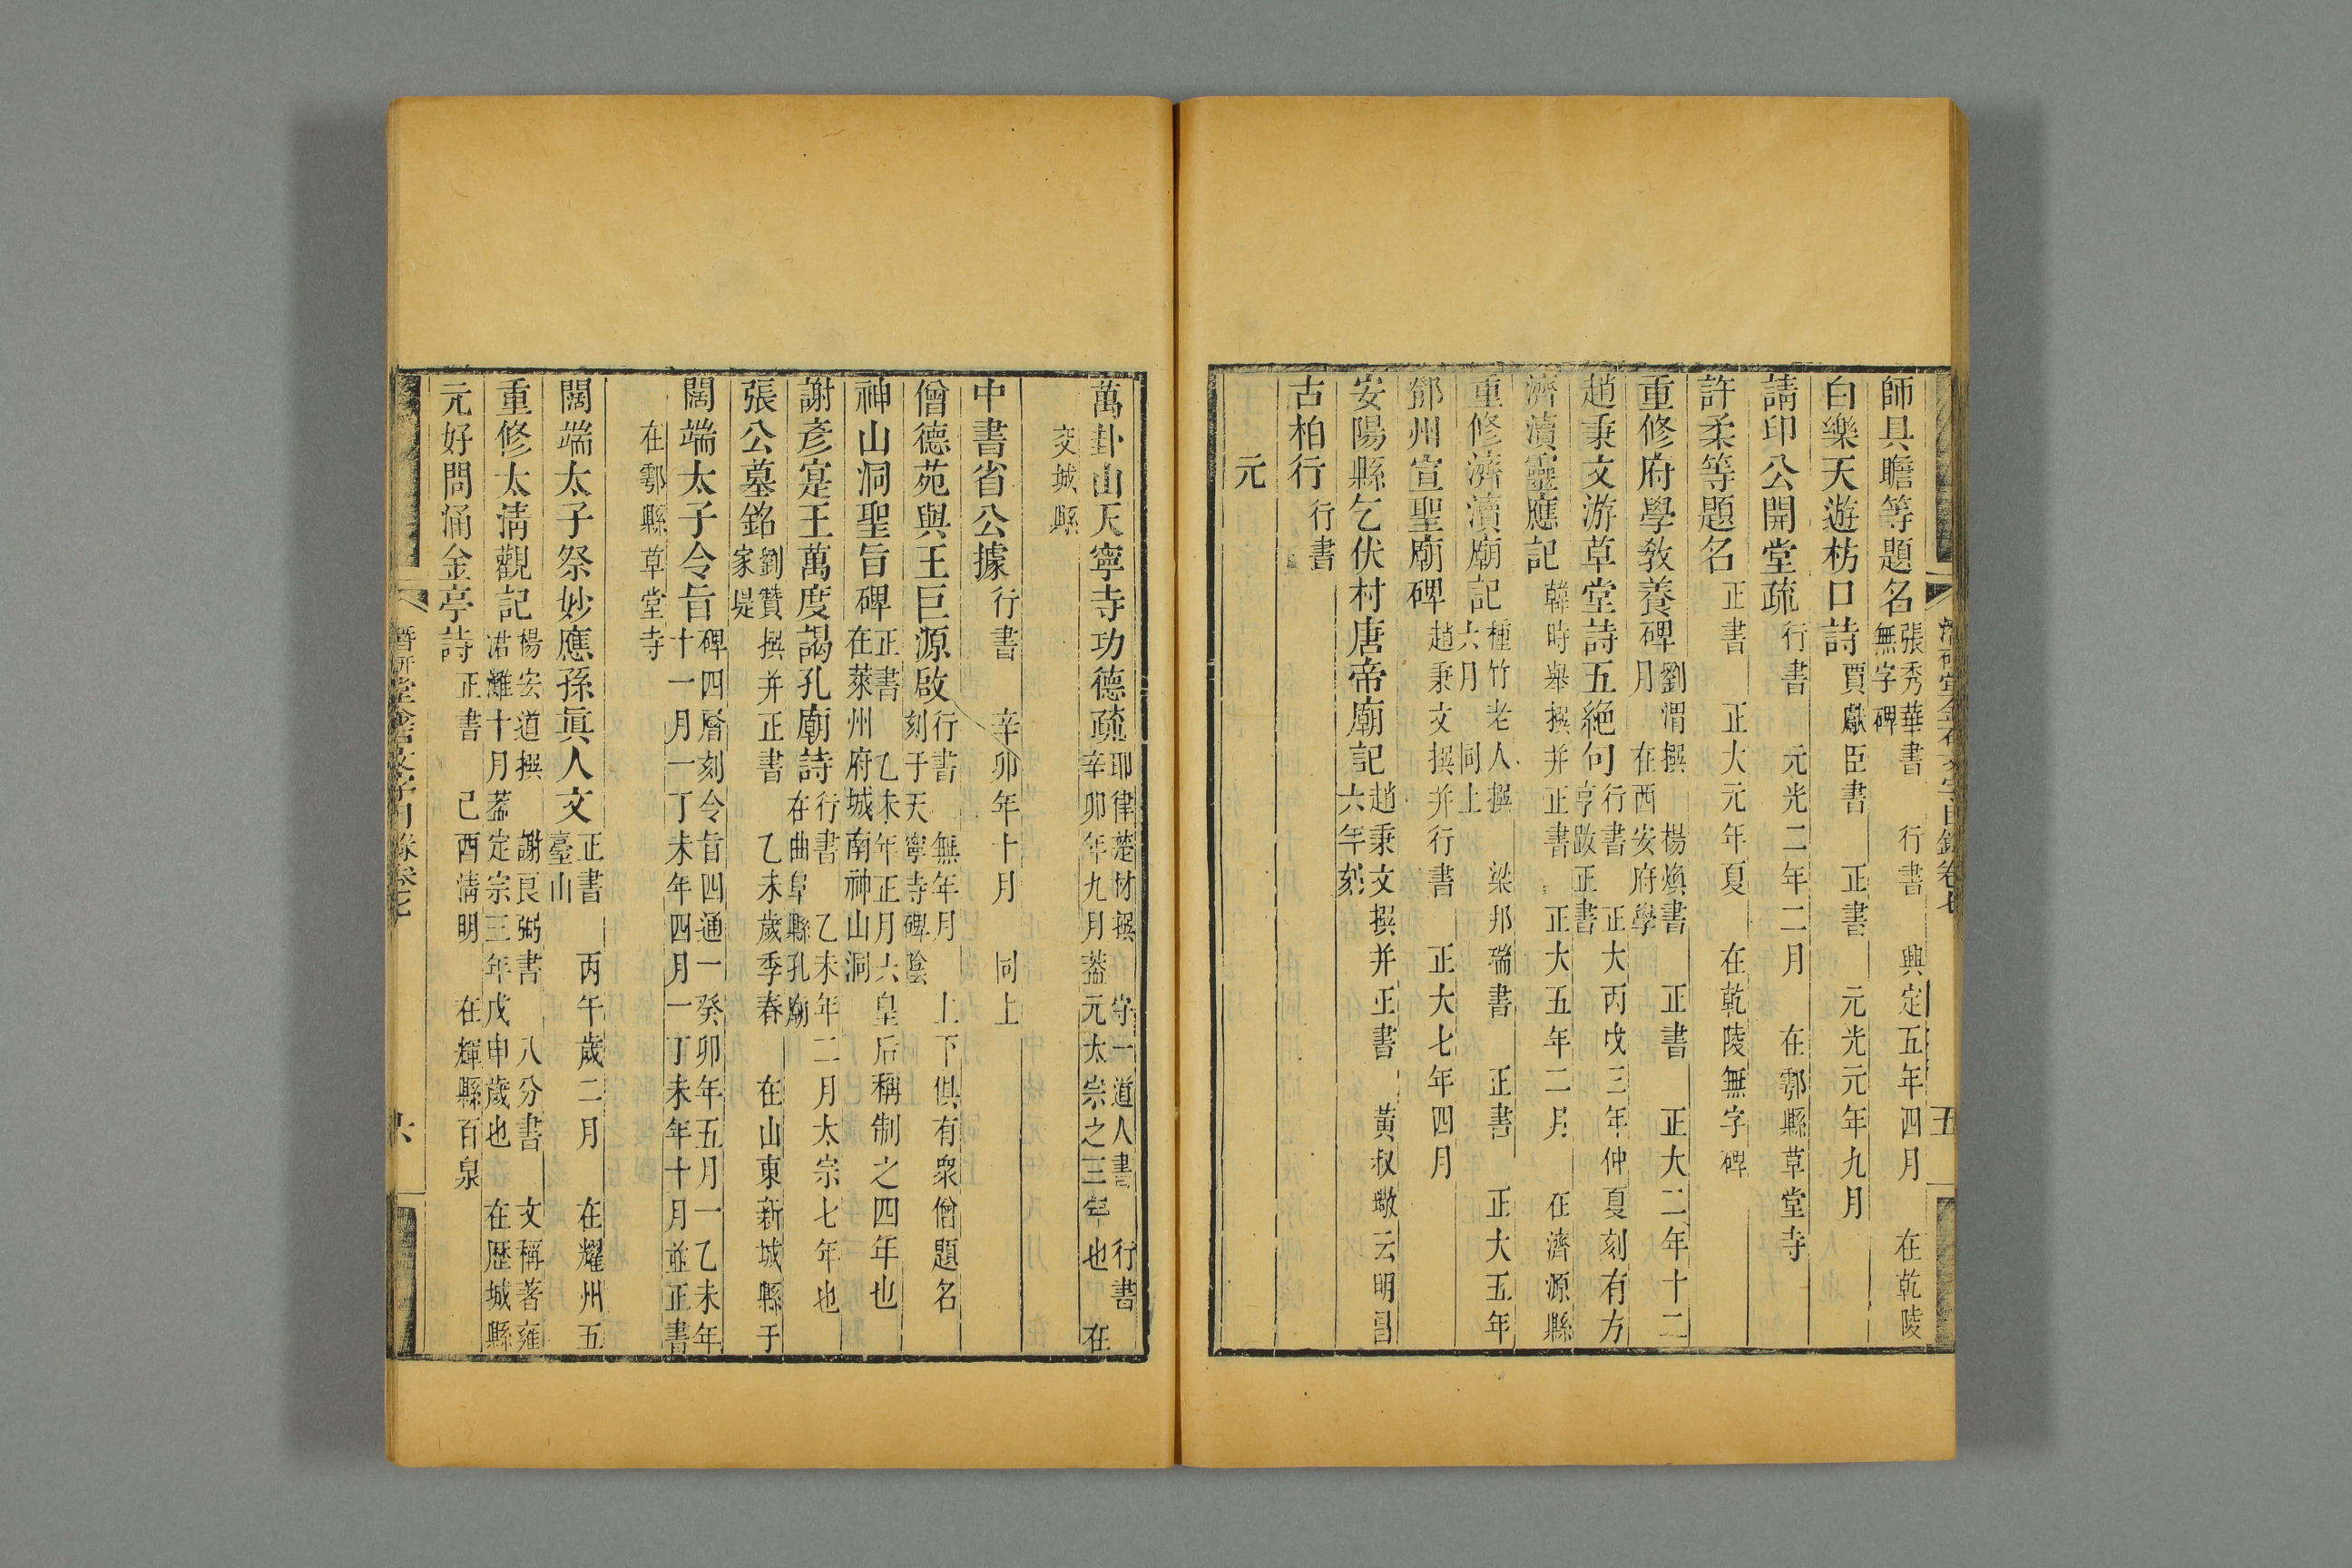 師具瞻等題名 張秀華書 行書 興定五年四月 在乾陵無字碑
白樂天遊枋口詩 賈獻臣書 正書 元光元年九月
請印公開堂疏 行書 元光二年二月 在鄠縣草堂寺
許柔等題名 正書 正大元年夏 在乾陵無字碑
重修府學教養碑 劉渭撰 楊煥書 正書 正大二年十二月 在西安府學
趙秉文游草堂詩五絶句 行書 正大丙戌三年仲夏刻有方亨跋正書
濟瀆靈應記 韓時舉撰并正書 正大五年二月 在濟源縣
重修濟瀆廟記 種竹老人撰 梁邦瑞書 正書 正大五年六月 同上
鄧州宣聖廟碑 趙秉文撰并行書 正大七年四月
安陽縣乞伏村唐帝廟記 趙秉文撰并正書 黃叔璥云明昌六年刻
古柏行 行書
元
萬卦山天寧寺功德疏 耶律楚材撰 守一道人書 行書 辛卯年九月葢元太宗之三年也 在
交城縣
中書省公據 行書 辛卯年十月 同上
僧德苑與王巨源啟 行書 無年月 上下俱有衆僧題名刻于天寧寺碑陰
神山洞聖旨碑 正書 乙未年正月六皇后稱制之四年也 在萊州府城南神山洞
謝彥寔王萬度謁孔廟詩 行書 乙未年二月太宗七年也 在曲阜縣孔廟
張公墓銘 劉贊撰并正書 乙未歲季春 在山東新城縣于家堤
闊端太子令旨 碑四層刻令旨四通一癸卯年五月一乙未年十一月一丁未年四月一丁未年十月並正書
在鄠縣草堂寺
闊端太子祭妙應孫眞人文 正書 丙午歲二月 在耀州五臺山
重修太清觀記 楊安道撰 謝良弼書 八分書 文稱著雍涒灘十月葢定宗三年戊申歲也 在歷城縣
元好問涌金亭詩 正書 己酉淸明 在輝縣百泉